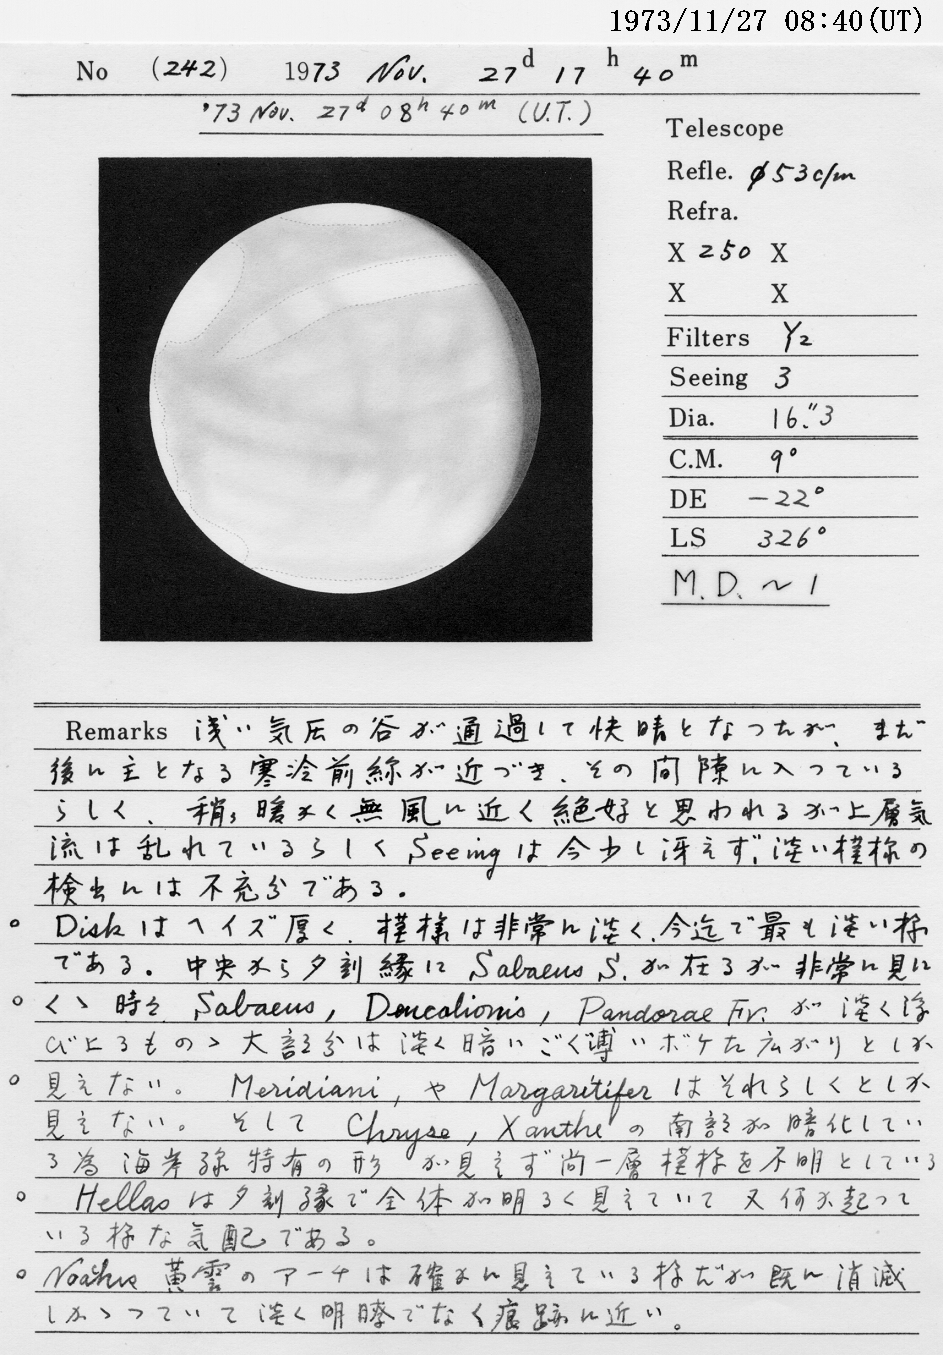 1973/11/27 08:40(UT)
No (242) 1973 Nov. 27d 17h 40m
'73 Nov. 27d 08h 40m (U.T.)
Telescope
Refle. φ53c/m
Refra.
X 250 X
X X
Filters Y2
Seeing 3
Dia. 16."3
C.M. 9°
DE -22°
LS 326°
M.D. ~ 1
Remarks 浅い気圧の谷が通過して快晴となったが、まだ
後に主となる寒冷前線が近づき、その間隙に入っている
らしく、稍々暖かく無風に近く絶好と思われるが上層気
流は乱れているらしくSeeingは今少し冴えず、淡い模様の
検出には不充分である。
○ Diskはヘイズ厚く、模様は非常に淡く、今迄で最も淡い様
である。中央から夕刻縁に Sabaeus S. が在るが非常に見に
○ くゝ 時々 Sabaeus, Deucalionis, Pandorae Fr. が淡く浮
び上るものゝ大部分は淡く暗いごく薄いボケた広がりとしか
○ 見えない。 Meridiani, や Margaritifer はそれらしくとしか
見えない。そして Chryse, Xanthe の南部が暗化してい
る為海岸線特有の形が見えず尚一層模様を不明としている
○ Hellas は夕刻縁で全体が明るく見えていて又何か起って
いる様な気配である。
○ Noachis 黄雲のアーチは確かに見えている様だが既に消滅
しかゝっていて淡く明瞭でなく痕跡に近い。